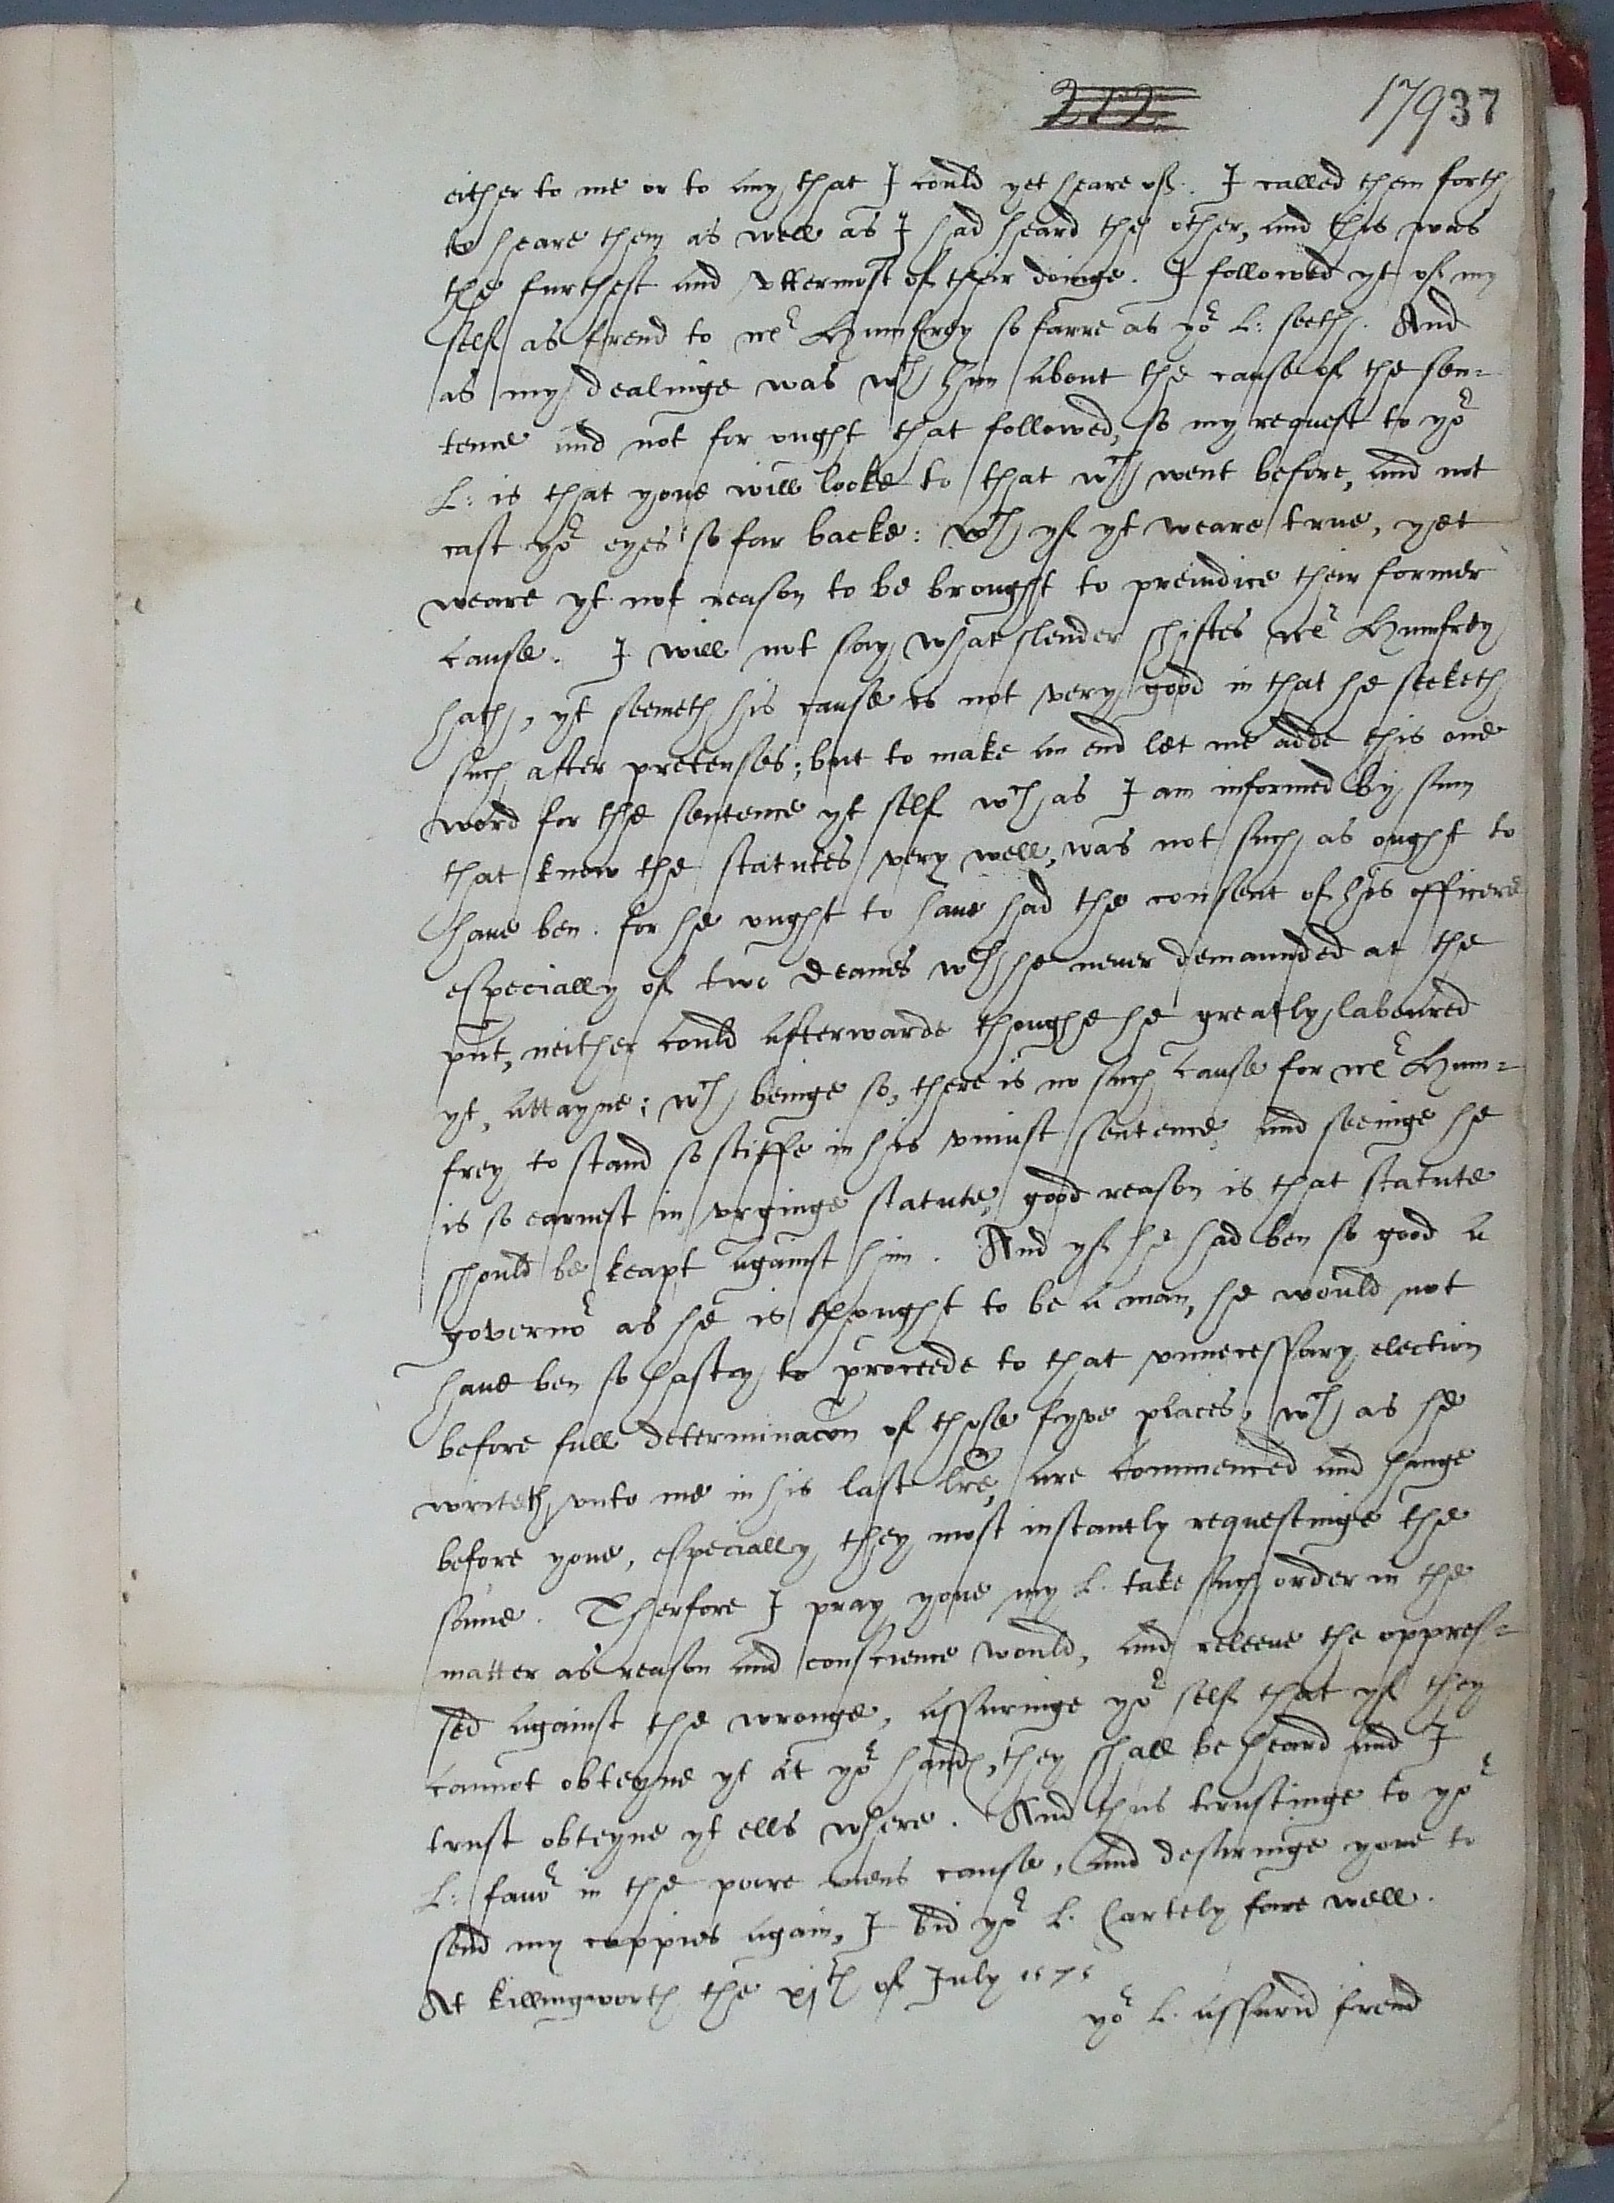 222
179 37
either to me or to any that I could yet heare of. I called them forth
to heare them as well as I had heard the other, and this was
the furthest and vttermost of their doinge. I followed yt of my
self as frend to mr Humfrey so farre as yor L: seeth. And
as my dealinge was wth him about the cause of the sen-
tence and not for ought that followed, so my request to yor
L: is that youe will looke to that wch went before, and not
cast yor eyes so far backe: wch yf yt weare true, yet
weare yt not reason to be brought to preiudice their former
cause. I will not say what slender shiftes mr Humfrey
hath, yt seemeth his cause is not very good in that he seeketh
such after pretenses; but to make an end let me adde this one
word for the sentence yt self wch as I am informed by sum
that know the statutes very well, was not such as ought to
haue ben. for he ought to haue had the consent of his officers
especially of two deanes wch he neuer demaunded at the
pnt, neither could afterwarde thoughe he greatly laboured
yt, attayne; wch beinge so, there is no such cause for mr Hum-
frey to stand so stiffe in his vniust sentence, and seeinge he
is so earnest in vrginge statute, good reason is that statute
should be keapt against him. And yf he had ben so good a
governor as he is thought to be a man, he would not
haue ben so hasty to proceede to that vnnecessary election
before full determinacon of those fyve places, wch as he
writeth vnto me in his last lre, are commenced and hange
before youe, especially they most instantly requestinge the
same. Therfore I pray youe my L. take such order in the
matter as reason and conscience would, and releeue the oppres-
sed against the wronge, assuringe yor self that yf they
cannot obteyne yt at yor hands, they shall be heard and I
trust obteyne yt ells where. And thus trustinge to yor
L: fauor in the poore mens cause, and desiringe youe to
send my coppies again, I bid yor L. hartely fare well.
At killingworth the xjth of July 1575
yor L. assured frend